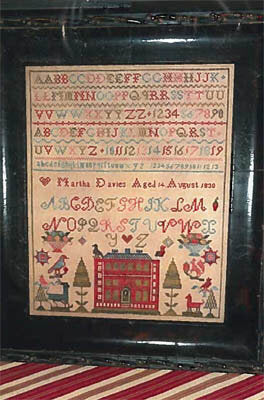 AABBCCDDEEFFGGHHIJJK
LLMMNNOOPPQQRRSSTTUU
VVWWXXYYZZ 1234567890
ABCDEFGHIJKLMNOPQRST
UVWXYZ 10 11 12 13 14 15 16 17 18 19
Martha Davies Aged 14 August 1830
ABCDEFGHIJKLM
NOPQRSTUVWX
YZ